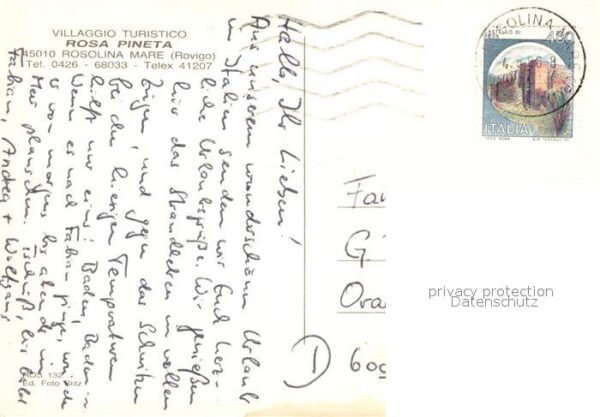 VILLAGGIO TURISTICO
ROSA PINETA
45010 ROSOLINA MARE (Rovigo)
Tel. 0426 - 68033 - Telex 41207
Hallo, Ihr Lieben!
Aus unserem wunderschönen Urlaub
in Italien senden wir Euch herz-
liche Urlaubsgrüße. Wir genießen
hier das Strandleben in vollen
Zügen, und gegen das Schwitzen
bei den hiesigen Temperaturen
hilft nur eins: Baden, Baden
Wenn es nach Fabian ginge, würde
er von morgens bis abends im
Meer planschen. Tschüß bis bald
Fabian, Andrea + Wolfgang
ROS 132
Ed. Foto Blitz
ROSOLINA
CASTELLO DI
ITALIA
Fa
G
Ora
600
privacy protection
Datenschutz